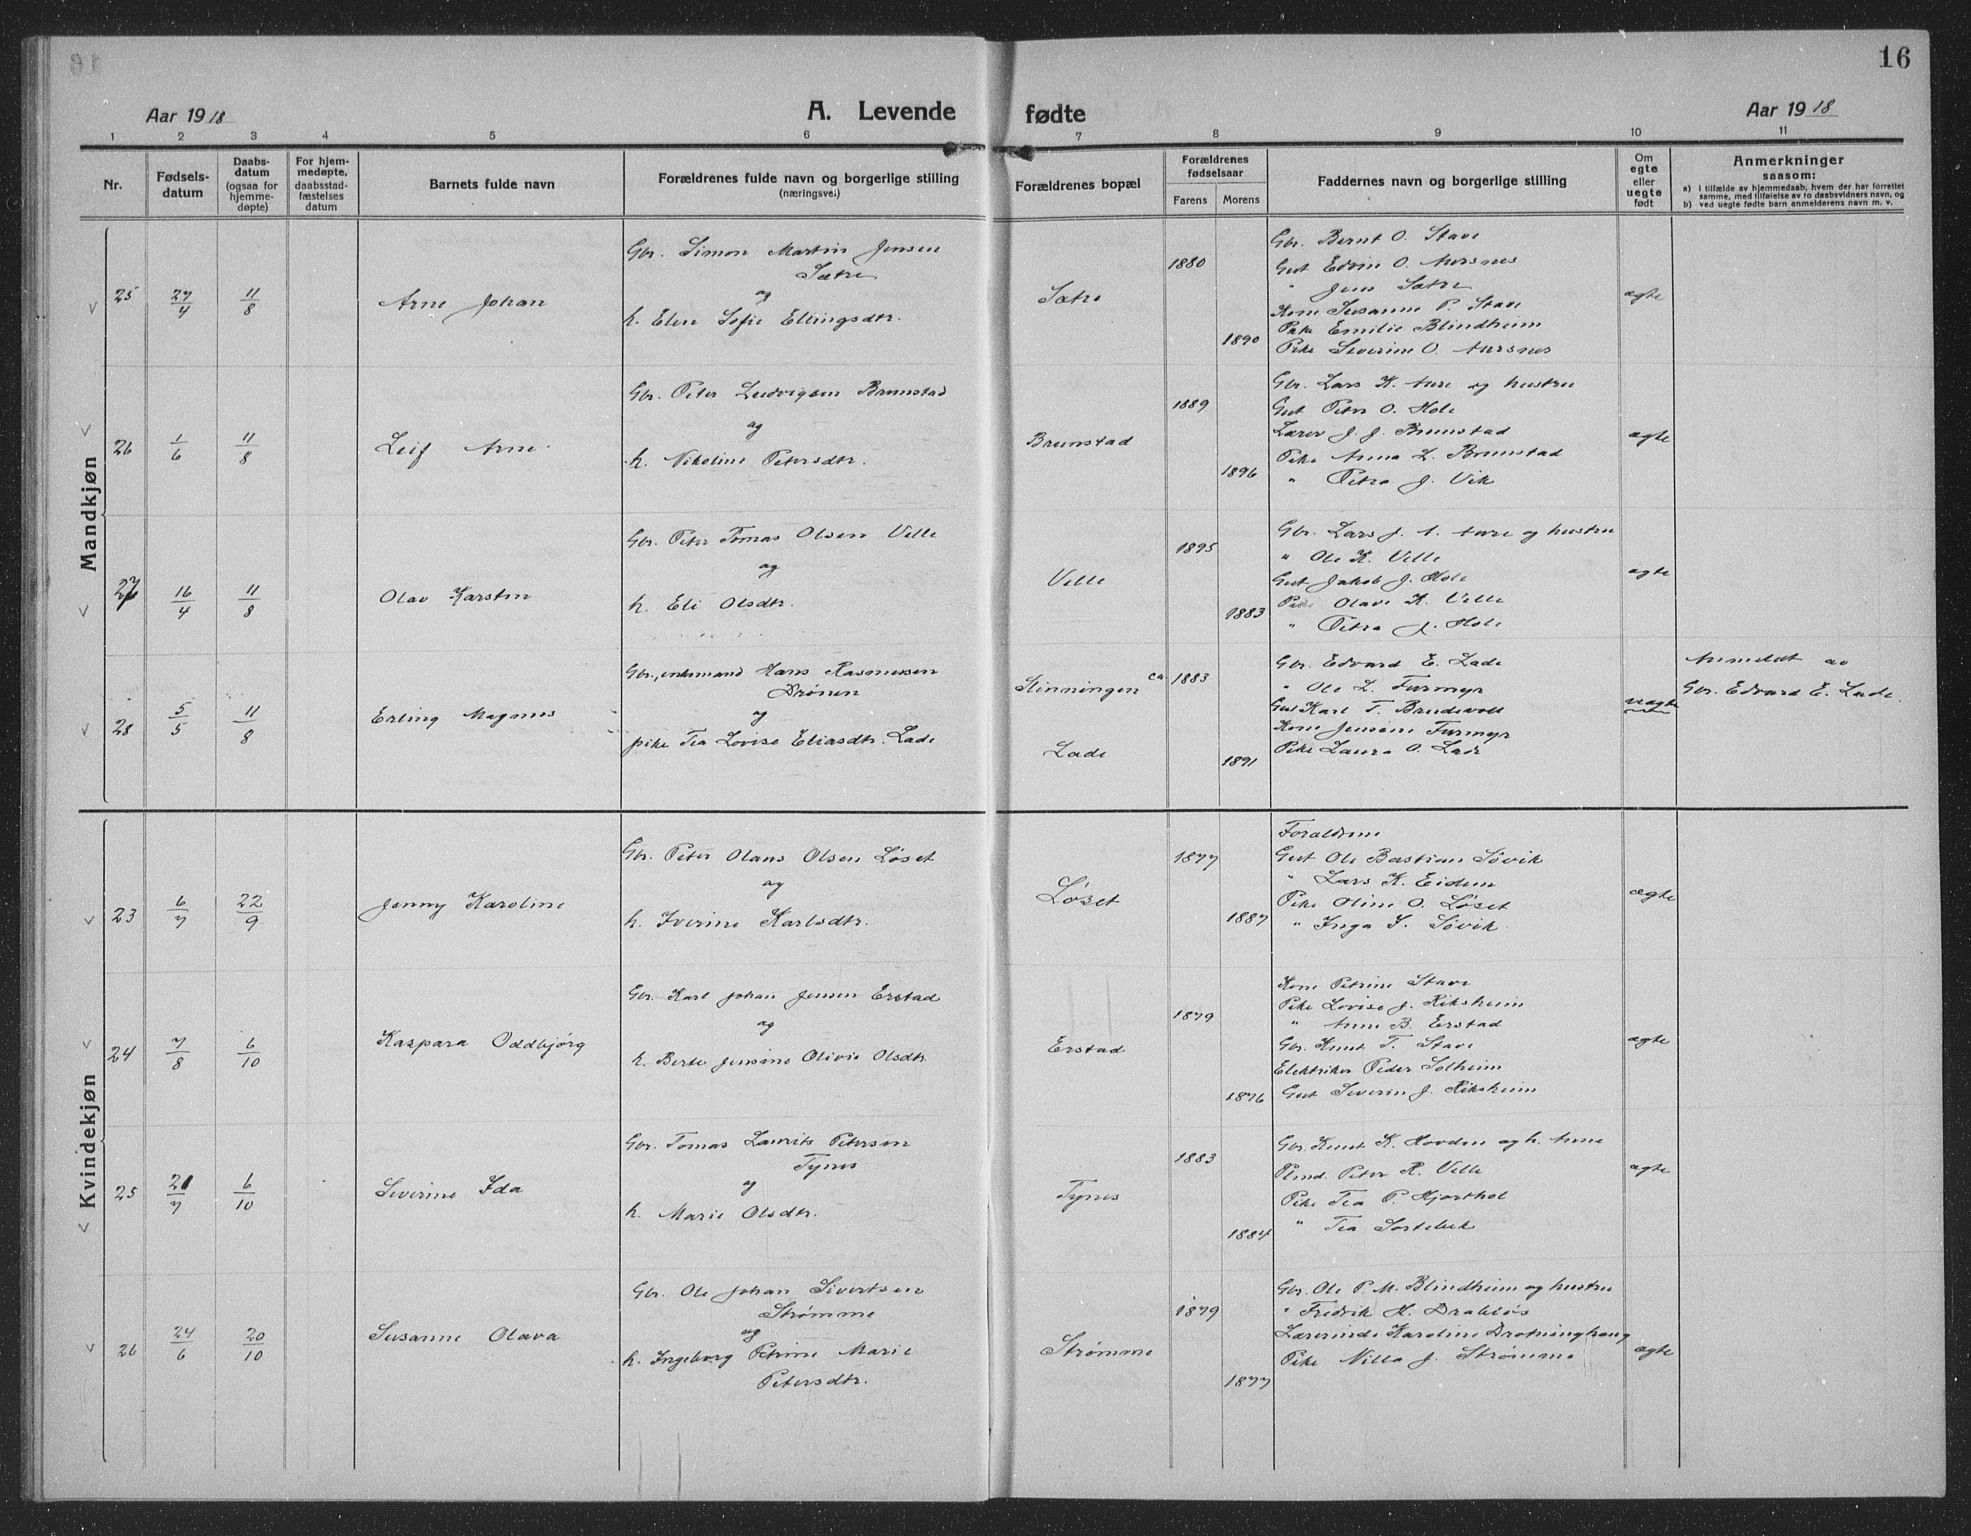 16
Aar 1918
A. Levende fødte
Aar 1918
1 2 3 4 5 6 7 8 9 10 11
Nr.
Fødsels-
datum
Daabs-
datum
(ogsaa for
hjemme-
døpte)
For hjem-
medøpte,
daabsstad-
fæstelses
datum
Barnets fulde navn
Forældrenes fulde navn og borgerlige stilling
(næringsvei)
Forældrenes bopæl
Forældrenes
fødselsaar
Farens Morens
Faddernes navn og borgerlige stilling
Om
egte
eller
uegte
født
Anmerkninger
saasom:
a) i tilfælde av hjemmedaab, hvem der har forrettet
samme, med tilføielse av to daabsvidners navn, og
b) ved uegte fødte barn anmelderens navn m. v.
Mandkjøn
25
27/4
11/8
Arne Johan
Gbr. Simon Martin Jensen
Sætre
og
h. Elen Sofie Ellingsdtr.
Sætre
1880
1890
Gbr. Bernt O. Stave
Gut Edvin O. Aursnes
" Jens Sætre
Kone Susanne P. Stave
Pike Emilie Blindheim
Pike Severine O. Aursnes
ægte
26
1/6
11/8
Leif Arne
Gbr. Peter Ludvigsen Brunstad
og
h. Nikoline Petersdtr.
Brunstad
1889
1896
Gbr. Lars K. Aure og hustru
Gut Peter O. Hole
Lærer J. J. Brunstad
Pike Anna L. Brunstad
" Petra J. Vik
ægte
27
16/4
11/8
Olav Karsten
Gbr. Peter Tomas Olsen Velle
og
h. Eli Olsdtr.
Velle
1895
1883
Gbr. Lars J. A. Aure og hustru
" Ole K. Velle
Gut Jakob J. Hole
Pike Olave K. Velle
" Petra J. Hole
ægte
28
5/5
11/8
Erling Magnus
Gbr., enkemand Hans Rasmussen
Drønen
og
pike Tea Lovise Eliasdtr. Lade
Stinningen
Lade
ca. 1883
1891
Gbr. Edvard E. Lade
" Ole L. Furmyr
Gut Karl T. Brudevoll
Kone Jensine Furmyr
Pike Laura O. Lade
uægte
Anmeldt av
Gbr. Edvard E. Lade
Kvindekjøn
23
6/7
22/9
Jenny Karoline
Gbr. Peter Olaus Olsen Løset
og
h. Iverine Karlsdtr.
Løset
1877
1887
Foraldrene
Gut Ole Bastian Søvik
" Lars K. Eidem
Pike Oline O. Løset
" Inga S. Søvik
ægte
24
7/8
6/10
Kaspara Oddbjørg
Gbr. Karl Johan Jensen Erstad
og
h. Berte Jensine Olivie Olsdtr.
Erstad
1879
1876
Kone Petrine Stave
Pike Lovise J. Riksheim
" Anne B. Erstad
Gbr. Knut T. Stave
Elektriker Peder Solheim
Gut Severin J. Riksheim
ægte
25
21/7
6/10
Severine Ida
Gbr. Tomas Laurits Petersen
Tynes
og
h. Marie Olsdtr.
Tynes
1883
1884
Gbr. Knut K. Hovden og h. Anne
Peter R. Velle
Pike Tea P. Hjorthol
" Tea Sortebek
ægte
26
24/6
20/10
Susanne Olava
Gbr. Ole Johan Sivertsen
Strømme
og
h. Ingeborg Petrine Marie
Petersdtr.
Strømme
1879
1877
Gbr. Ole P. M. Blindheim og hustru
" Fredrik H. Drabløs
Lærerinde Karoline Drotninghaug
Pike Nilla J. Strømme
ægte